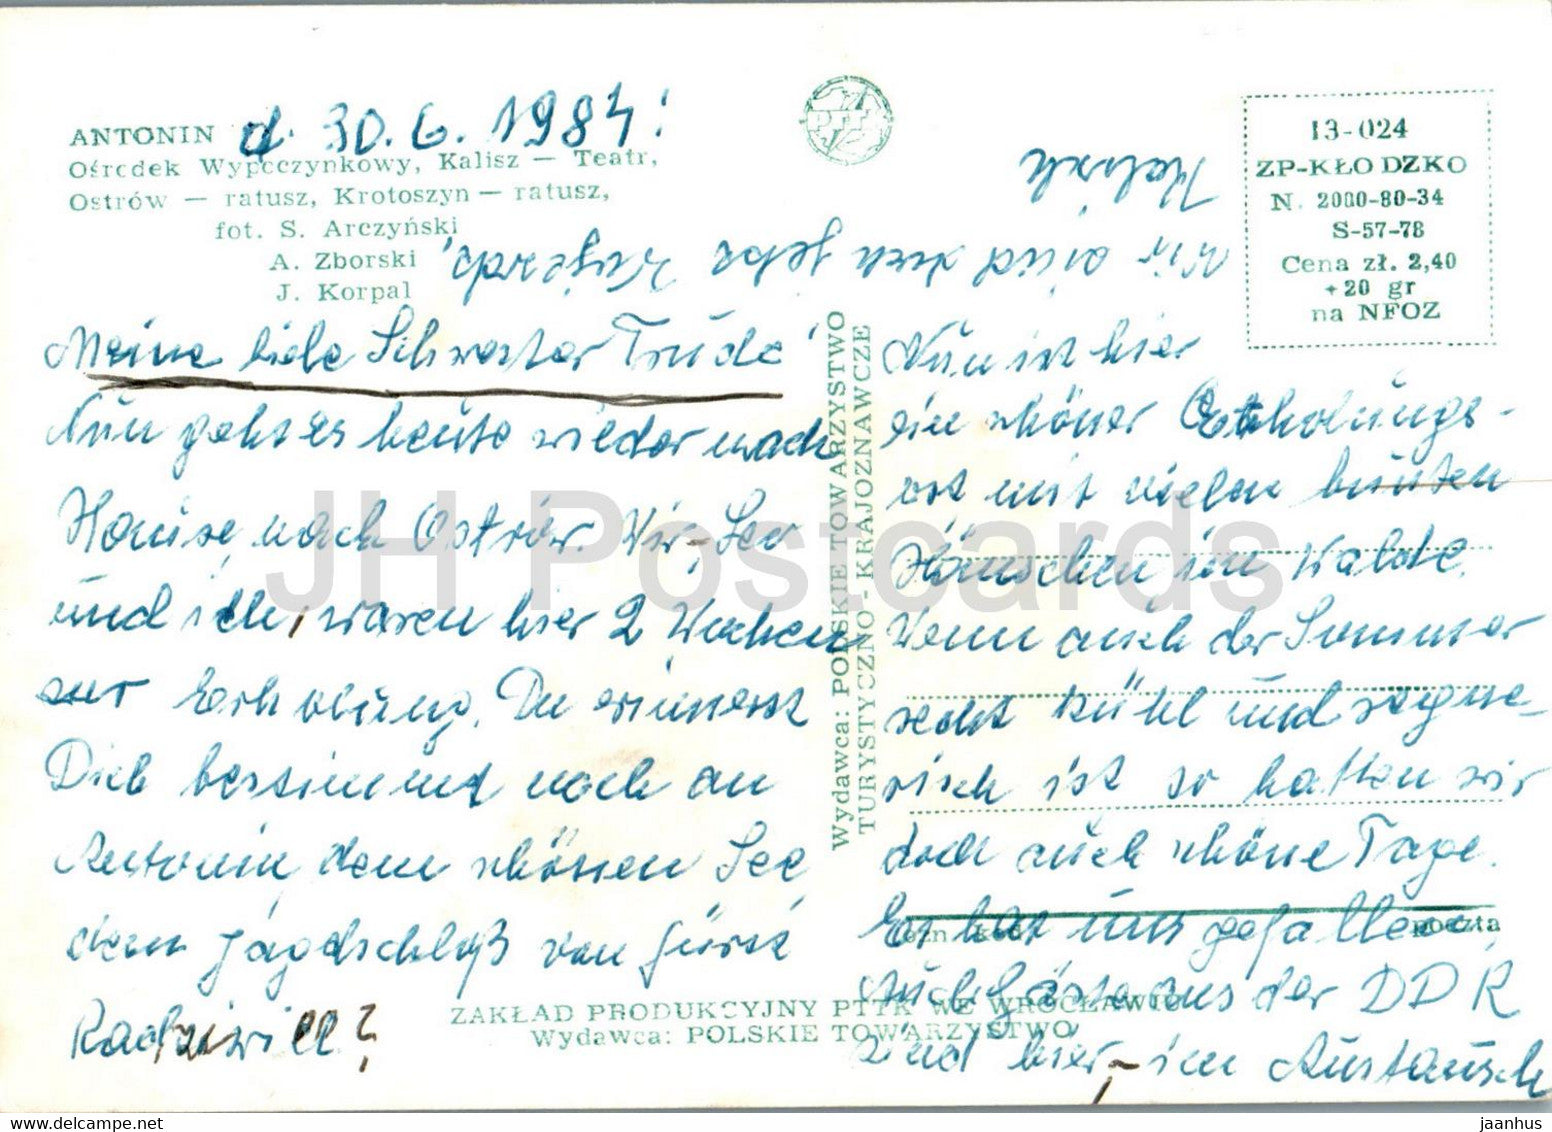 ANTONIN
d. 30. 6. 1984!
Ośrodek Wypoczynkowy, Kalisz — Teatr,
Ostrów — ratusz, Krotoszyn — ratusz,
fot. S. Arczyński
A. Zborski
J. Korpal
PTTK
13-024
ZP-KŁODZKO
N. 2000-80-34
S-57-78
Cena zł. 2,40
+20 gr
na NFOZ
Meine liebe Schwester Trude!
Nun geht es heute wieder nach
Hause, nach Ostrów. Wir - Leo
und ich, waren hier 2 Wochen
zur Erholung. Du erinnerst
Dich bestimmt noch an
Antonin, dem schönen See,
dem Jagdschloß von Fürst
Radziwill?
Wydawca: POLSKIE TOWARZYSTWO
TURYSTYCZNO - KRAJOZNAWCZE
Nun ist hier
ein schöner Erholungs-
ort mit vielen bunten
Häuschen im Walde.
Wenn auch der Sommer
recht kühl und regne-
risch ist so hatten wir
doch auch schöne Tage.
Es hat uns gefallen.
Auch Gäste aus der DDR
sind hier - im Austausch
Wir sind doch jetzt
poczta
ZAKŁAD PRODUKCYJNY PTTK WE WROCŁAWIU
Wydawca: POLSKIE TOWARZYSTWO
JH Postcards
www.delcampe.net
jaanhus